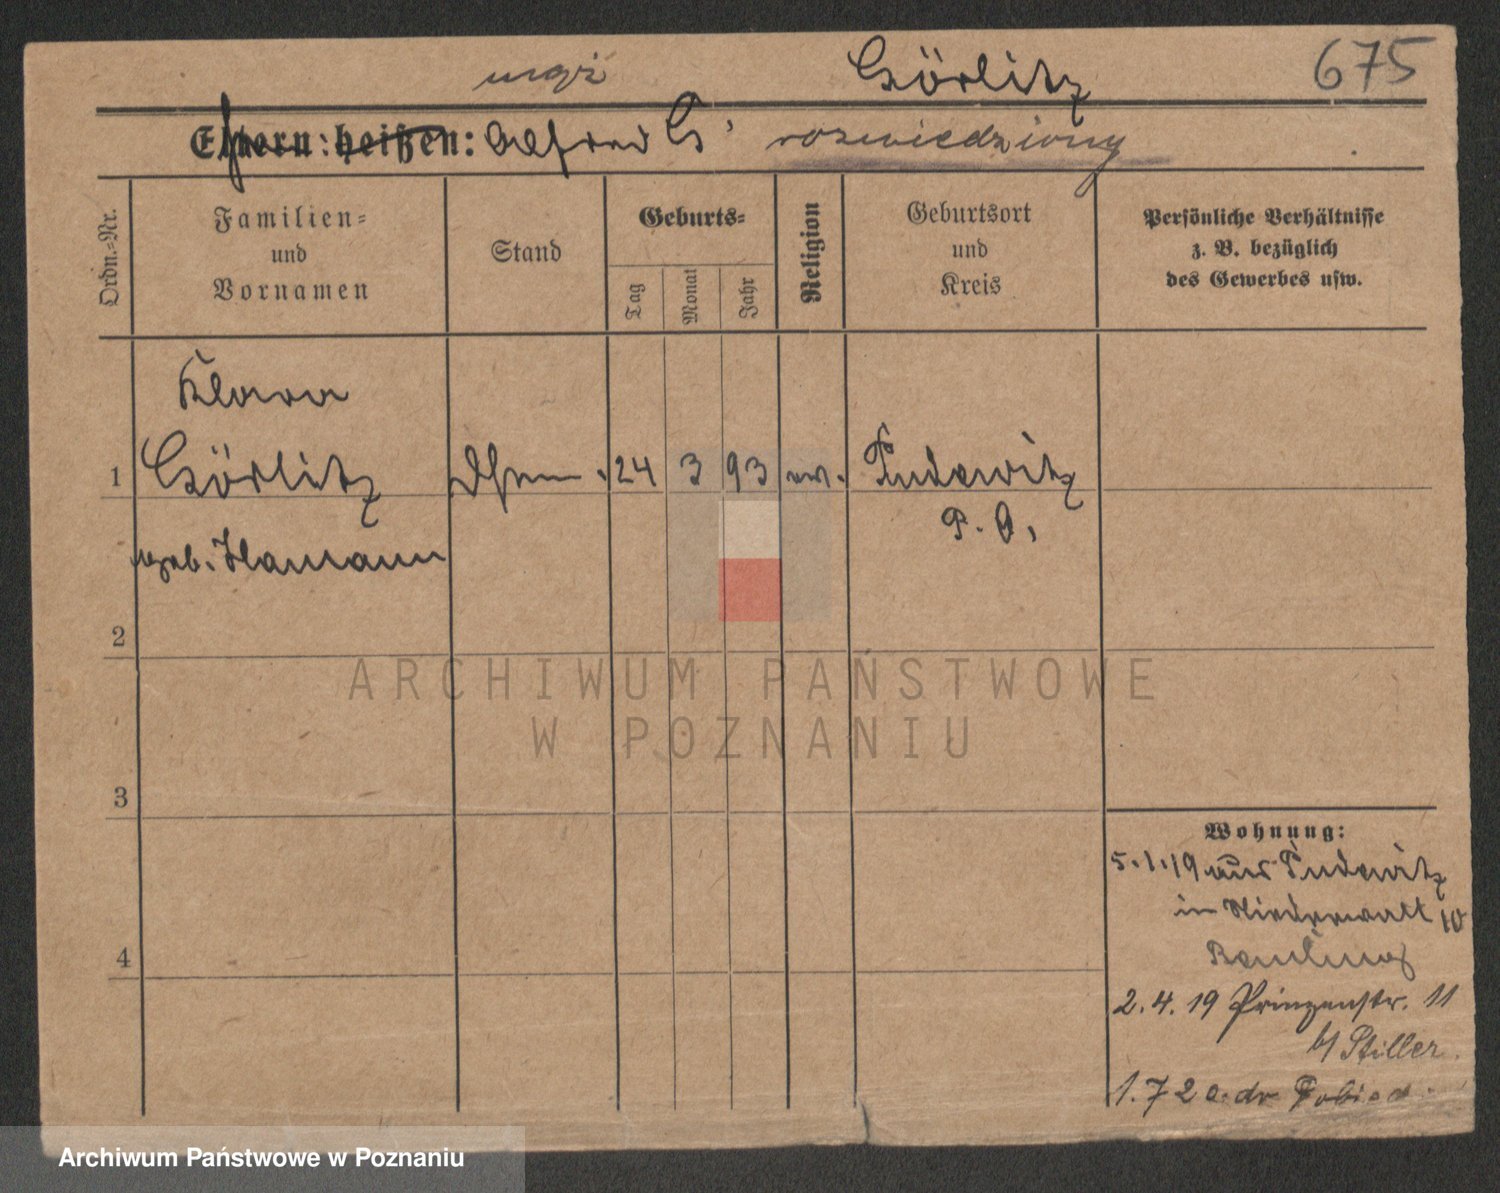 mąż Görlitz 675
Eltern: heißen: Alfred G. rozwiedziony
Ordn.=Nr.
Familien=
und
Vornamen
Stand
Geburts=
Tag
Monat
Jahr
Religion
Geburtsort
und
Kreis
Persönliche Verhältnisse
z. B. bezüglich
des Gewerbes usw.
Klara
1 Görlitz Ehefrau 24 3 93 ev. Pudewitz
geb. Hamann P. O.
2
3
4
Wohnung:
5.1.19 aus Pudewitz
in Niederwall 10
2.4.19 Prinzenstr. 11
b/ Stiller.
1.7 20 dr
ARCHIWUM PAŃSTWOWE
W POZNANIU
Archiwum Państwowe w Poznaniu